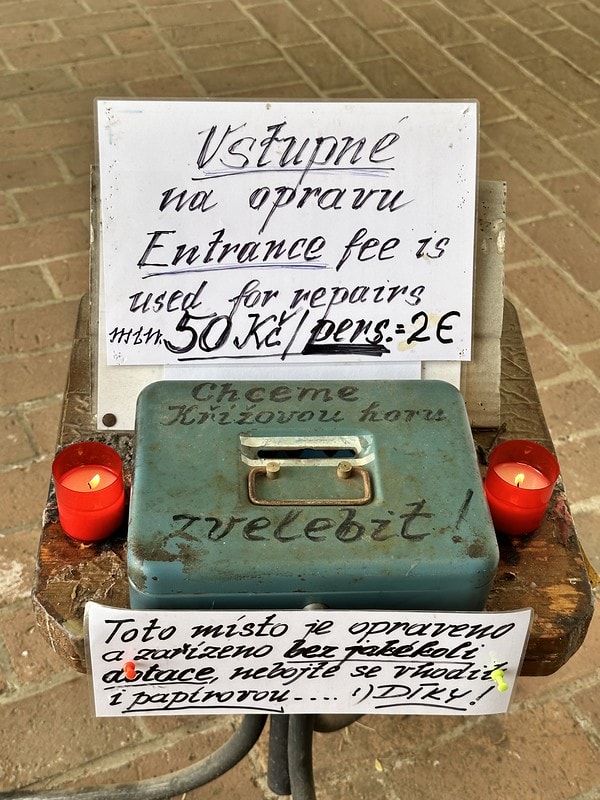 Vstupné
na opravu
Entrance fee is
used for repairs
min. 50 Kč/pers.=2€
Chceme
Křížovou horu
zvelebit!
Toto místo je opraveno
a zařízeno bez jakékoli
dotace, nebojte se vhodit
i papírovou.... :) DÍKY!